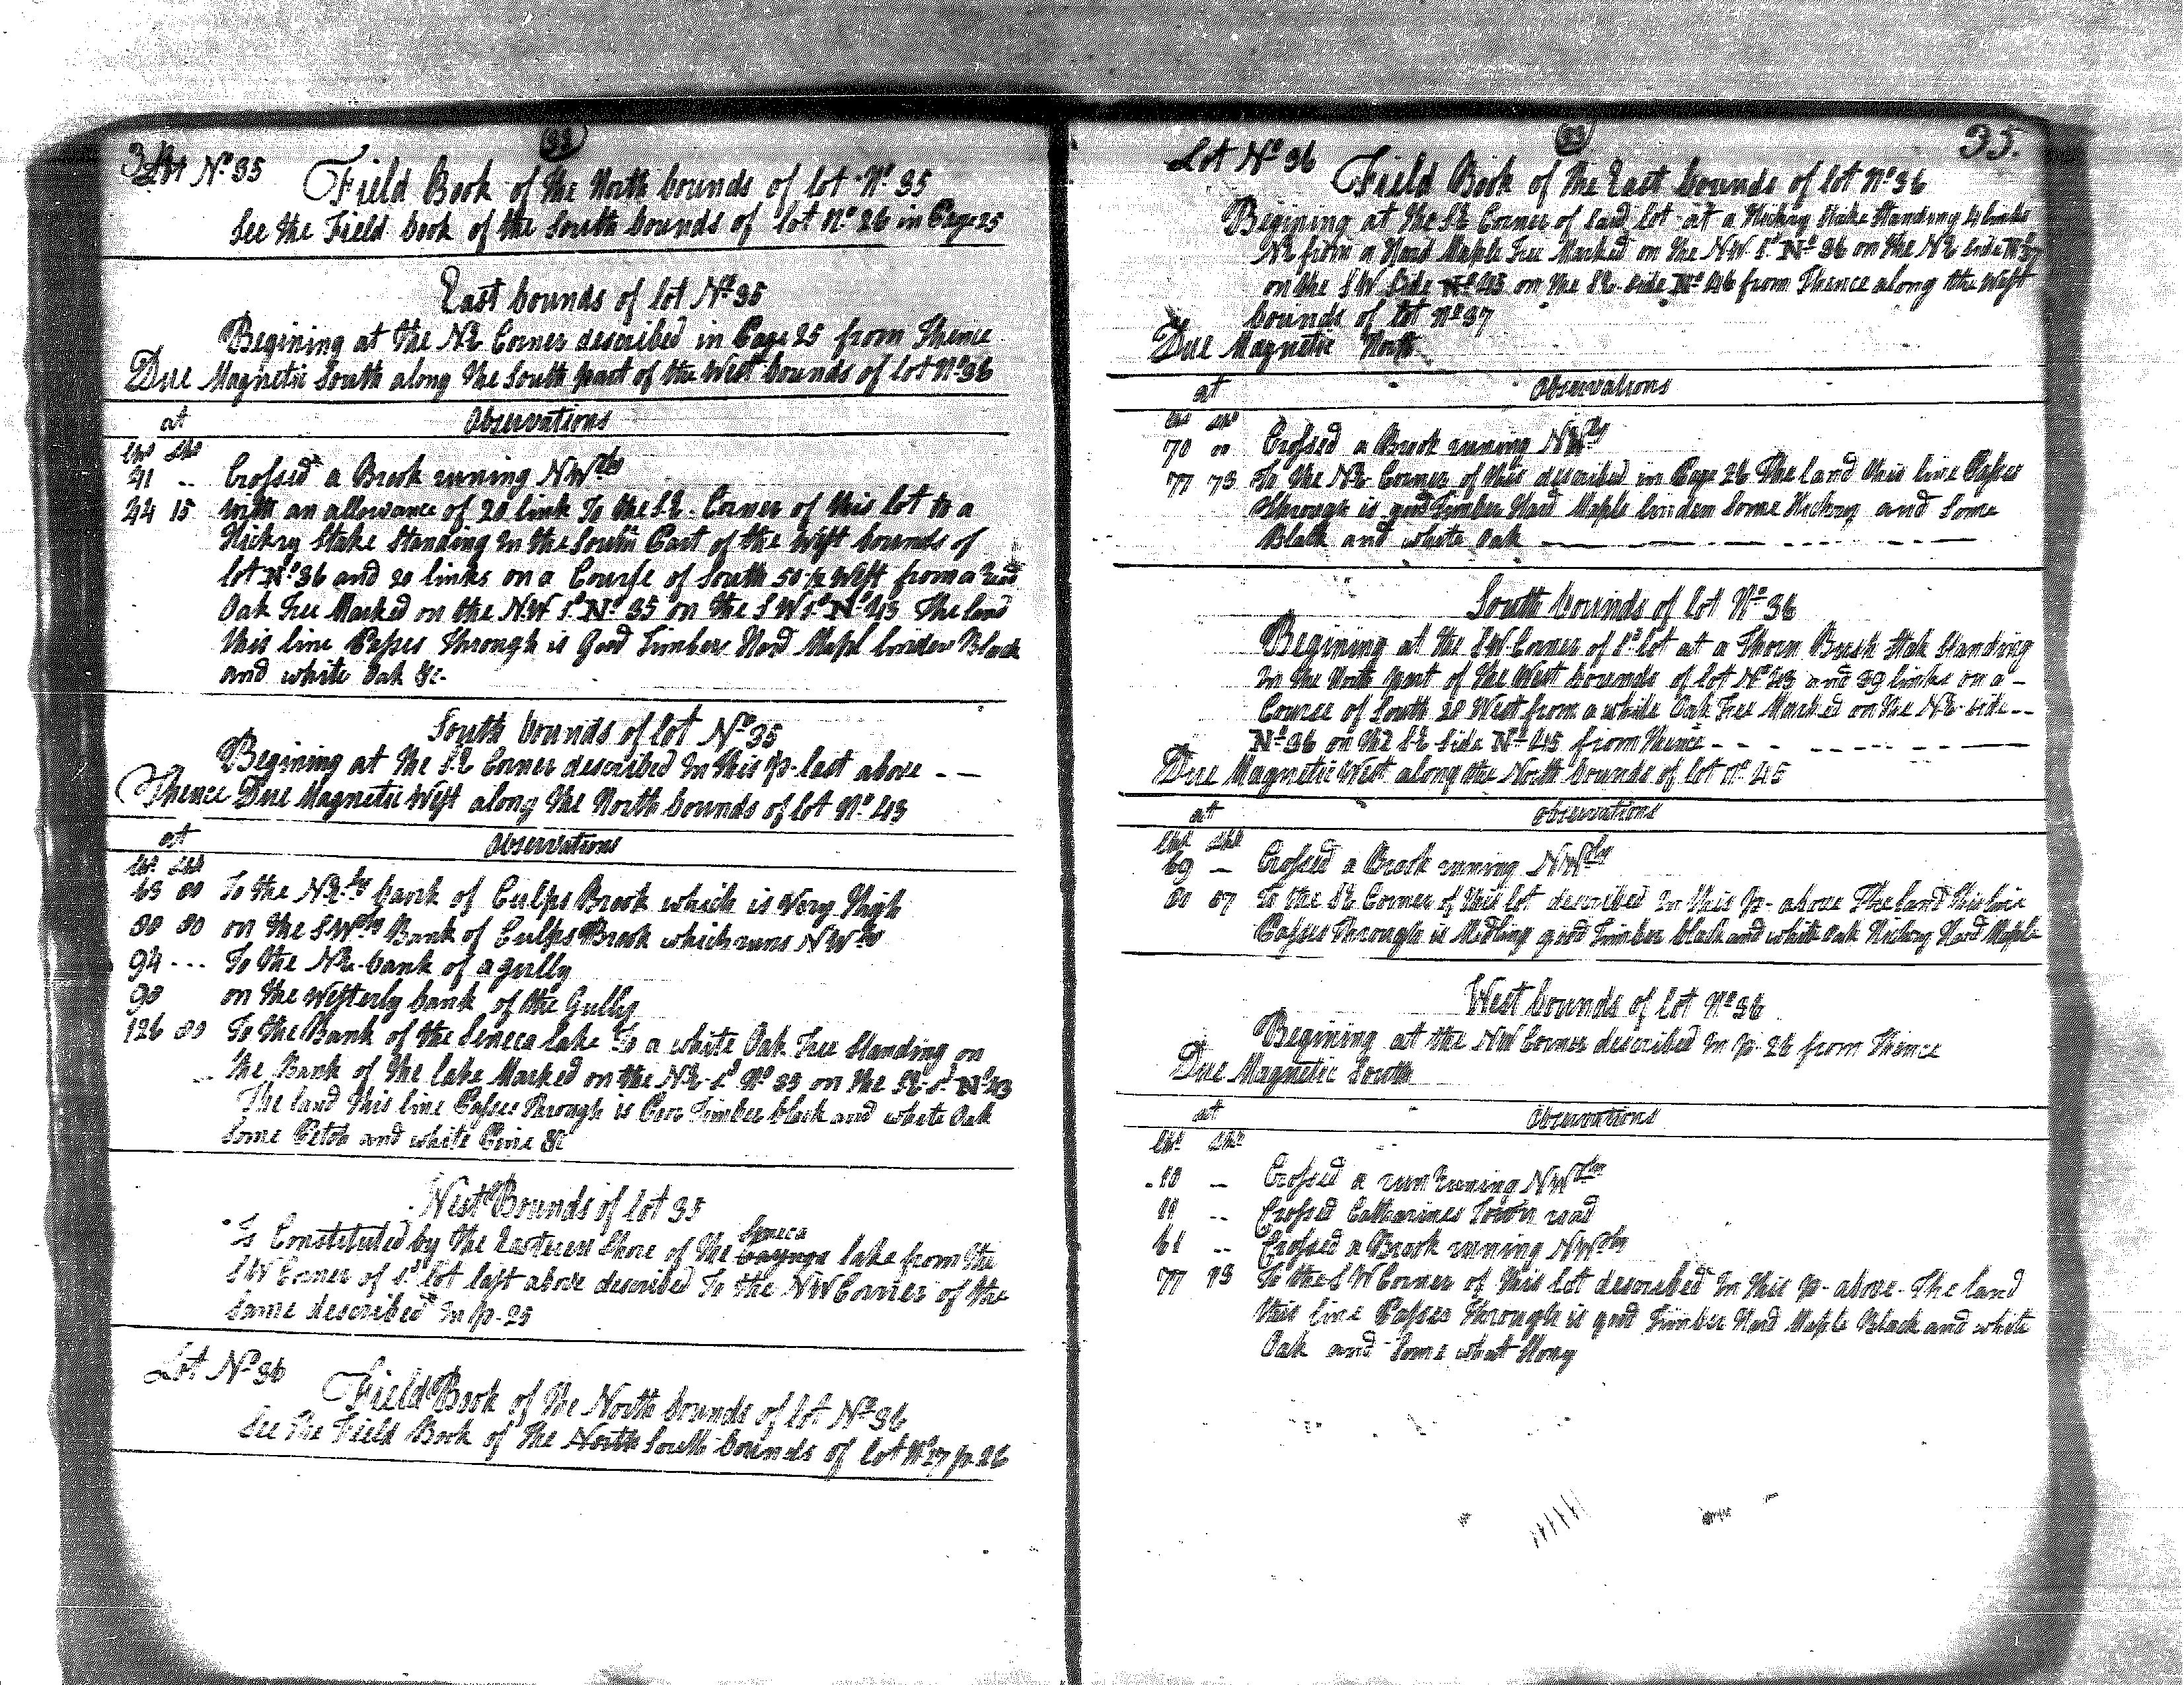 33
Lot Nº 35
Field Book of the North bounds of lot Nº 35
See the Field book of the South bounds of lot Nº 26 in Page 25
East bounds of lot Nº 35
Begining at the NE Corner described in Page 25 from Thence
Due Magnetic South along the South part of the West bounds of lot Nº 36
at Observations
Chs Lks
21 .. Crossed a Brook runing NWly
44 15 with an allowance of 20 link To the SE. Corner of this lot to a
Hickry Stake Standing in the South Part of the West bounds of
lot Nº 36 and 20 links on a Course of South 50 1/2 West from a
Oak Tree Marked on the NW sd Nº 35 on the SW sd Nº 43 The land
this line Passes Through is Good Timber Hard Mapl linden Black
and white Oak &c.
South bounds of lot Nº 35
Begining at the SE Corner described in this p. last above - -
Thence Due Magnetic West along the North bounds of lot Nº 43
at Observations
Chs Lks
To the NEly bank of Culps Brook which is Very High
on the SWly Bank of Culps Brook which runs NWly
94 ... To the NE. bank of a gully
on the Westerly bank of the Gully
126 To the Bank of the Seneca lake To a white Oak Tree Standing on
the Bank of the lake Marked on the NE. sd on the SE. sd Nº 43
The land this line Passes Through is Poor Timber black and white Oak
Some Petch and white Pine &c
West Bounds of lot 35
Is Constituted by the Eastern Shore of the Cayuga Seneca lake from the
SW Corner of sd lot last above described To the NW Corner of the
Same described in p. 25
Lot Nº 36
Field Book of the North bounds of lot Nº 36
See the Field Book of the North South bounds of lot Nº 27 p. 26
33
35.
Lot Nº 36
Field Book of the East bounds of lot Nº 36
Begining at the SE Corner of said lot at a Hickry Stake Standing links
NE from a Hard Maple Tree Marked on the NW. sd Nº 36 on the NE side Nº 37
on the SW Side Nº 45 on the SE. side Nº 46 from Thence along the West
bounds of lot Nº 37
Due Magnetic North
at Observations
Chs Lks
70 00 Crossed a Brook runing NWly
77 73 To the NE. Corner of this described in Page 26 The land this line Passes
Through is good Timber Hard Maple linden Some Hickry and Some
Black and white Oak
South bounds of lot Nº 36
Begining at the SW Corner of sd lot at a Thorn Bush Stak Standing
in the North part of the West bounds of lot Nº 43 and 39 links on a -
Course of South 20 West from a white Oak Tree Marked on the NE. side --
Nº 36 on the SE Side Nº 45 from Thence - - -
Due Magnetic West along the North bounds of lot Nº 45
at Observations
Chs Lks
69 - Crossed a Brook runing NWly
To the SE Corner of this lot described in this p. above The land this line
Passes Through is Midling good Timber black and white Oak Hickory Hard Maple
West bounds of lot Nº 36
Begining at the NW Corner described in p. 26 from Thence
Due Magnetic South
at Observations
Chs Lks
10 - Crossed a run runing NWly
.. Crossed Catharines Town road
61 .. Crossed a Brook runing NWly
77 73 To the SW Corner of this lot described in this p. above. The land
this line Passes Through is good Timber Hard Maple Black and white
Oak and Some what Stony